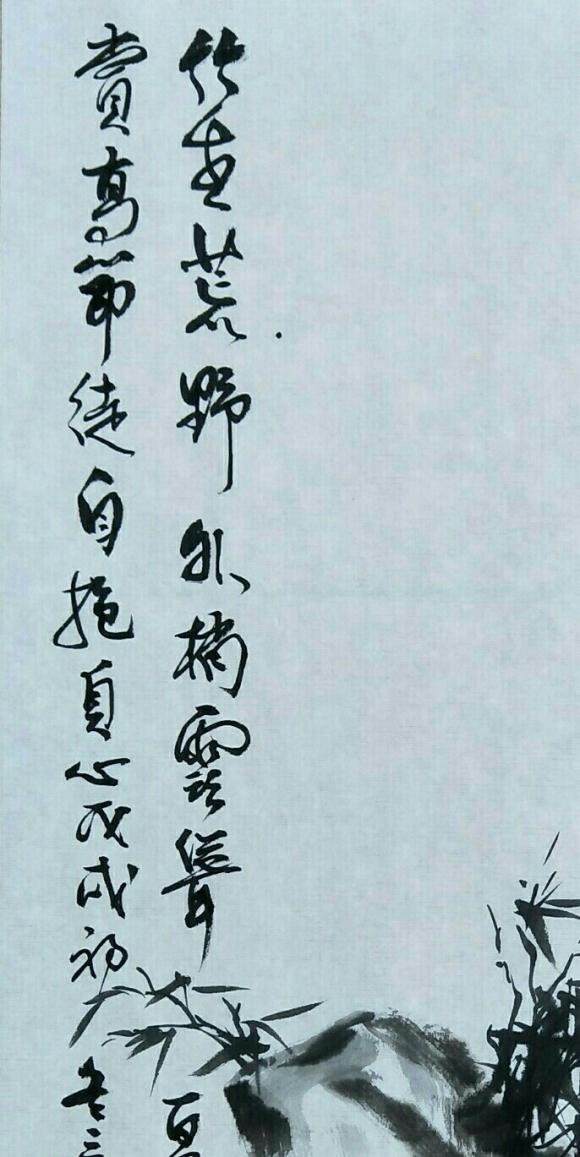 竹生荒野外梢雲聳百
賞高節徒自抱貞心戊戌初冬